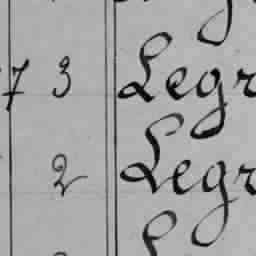 7 3 Legr
2 Legr